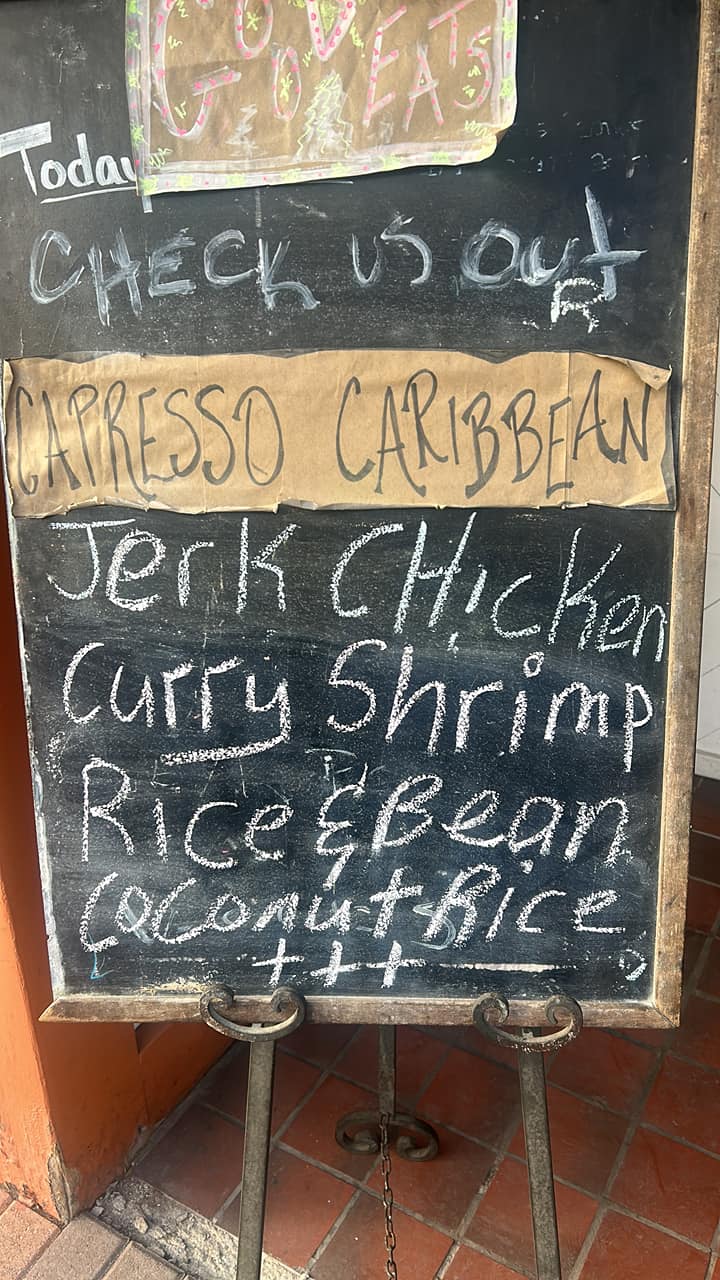 GOOD EATS
Today
CHECK US OUT
R
CAPRESSO CARIBBEAN
Jerk CHicken
Curry Shrimp
Rice & Bean
Coconut Rice
+++